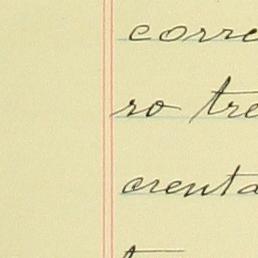 corre
ro tre
orenta